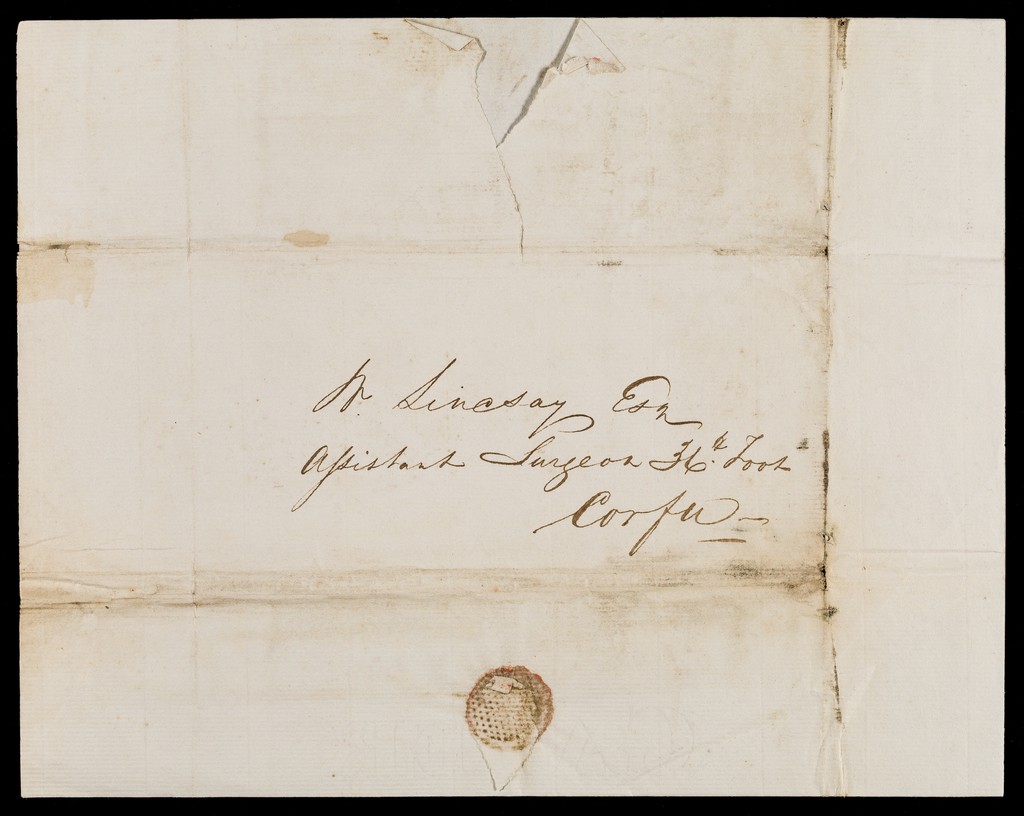 W. Lindsay Esq
Assistant Surgeon 36th Foot
Corfu